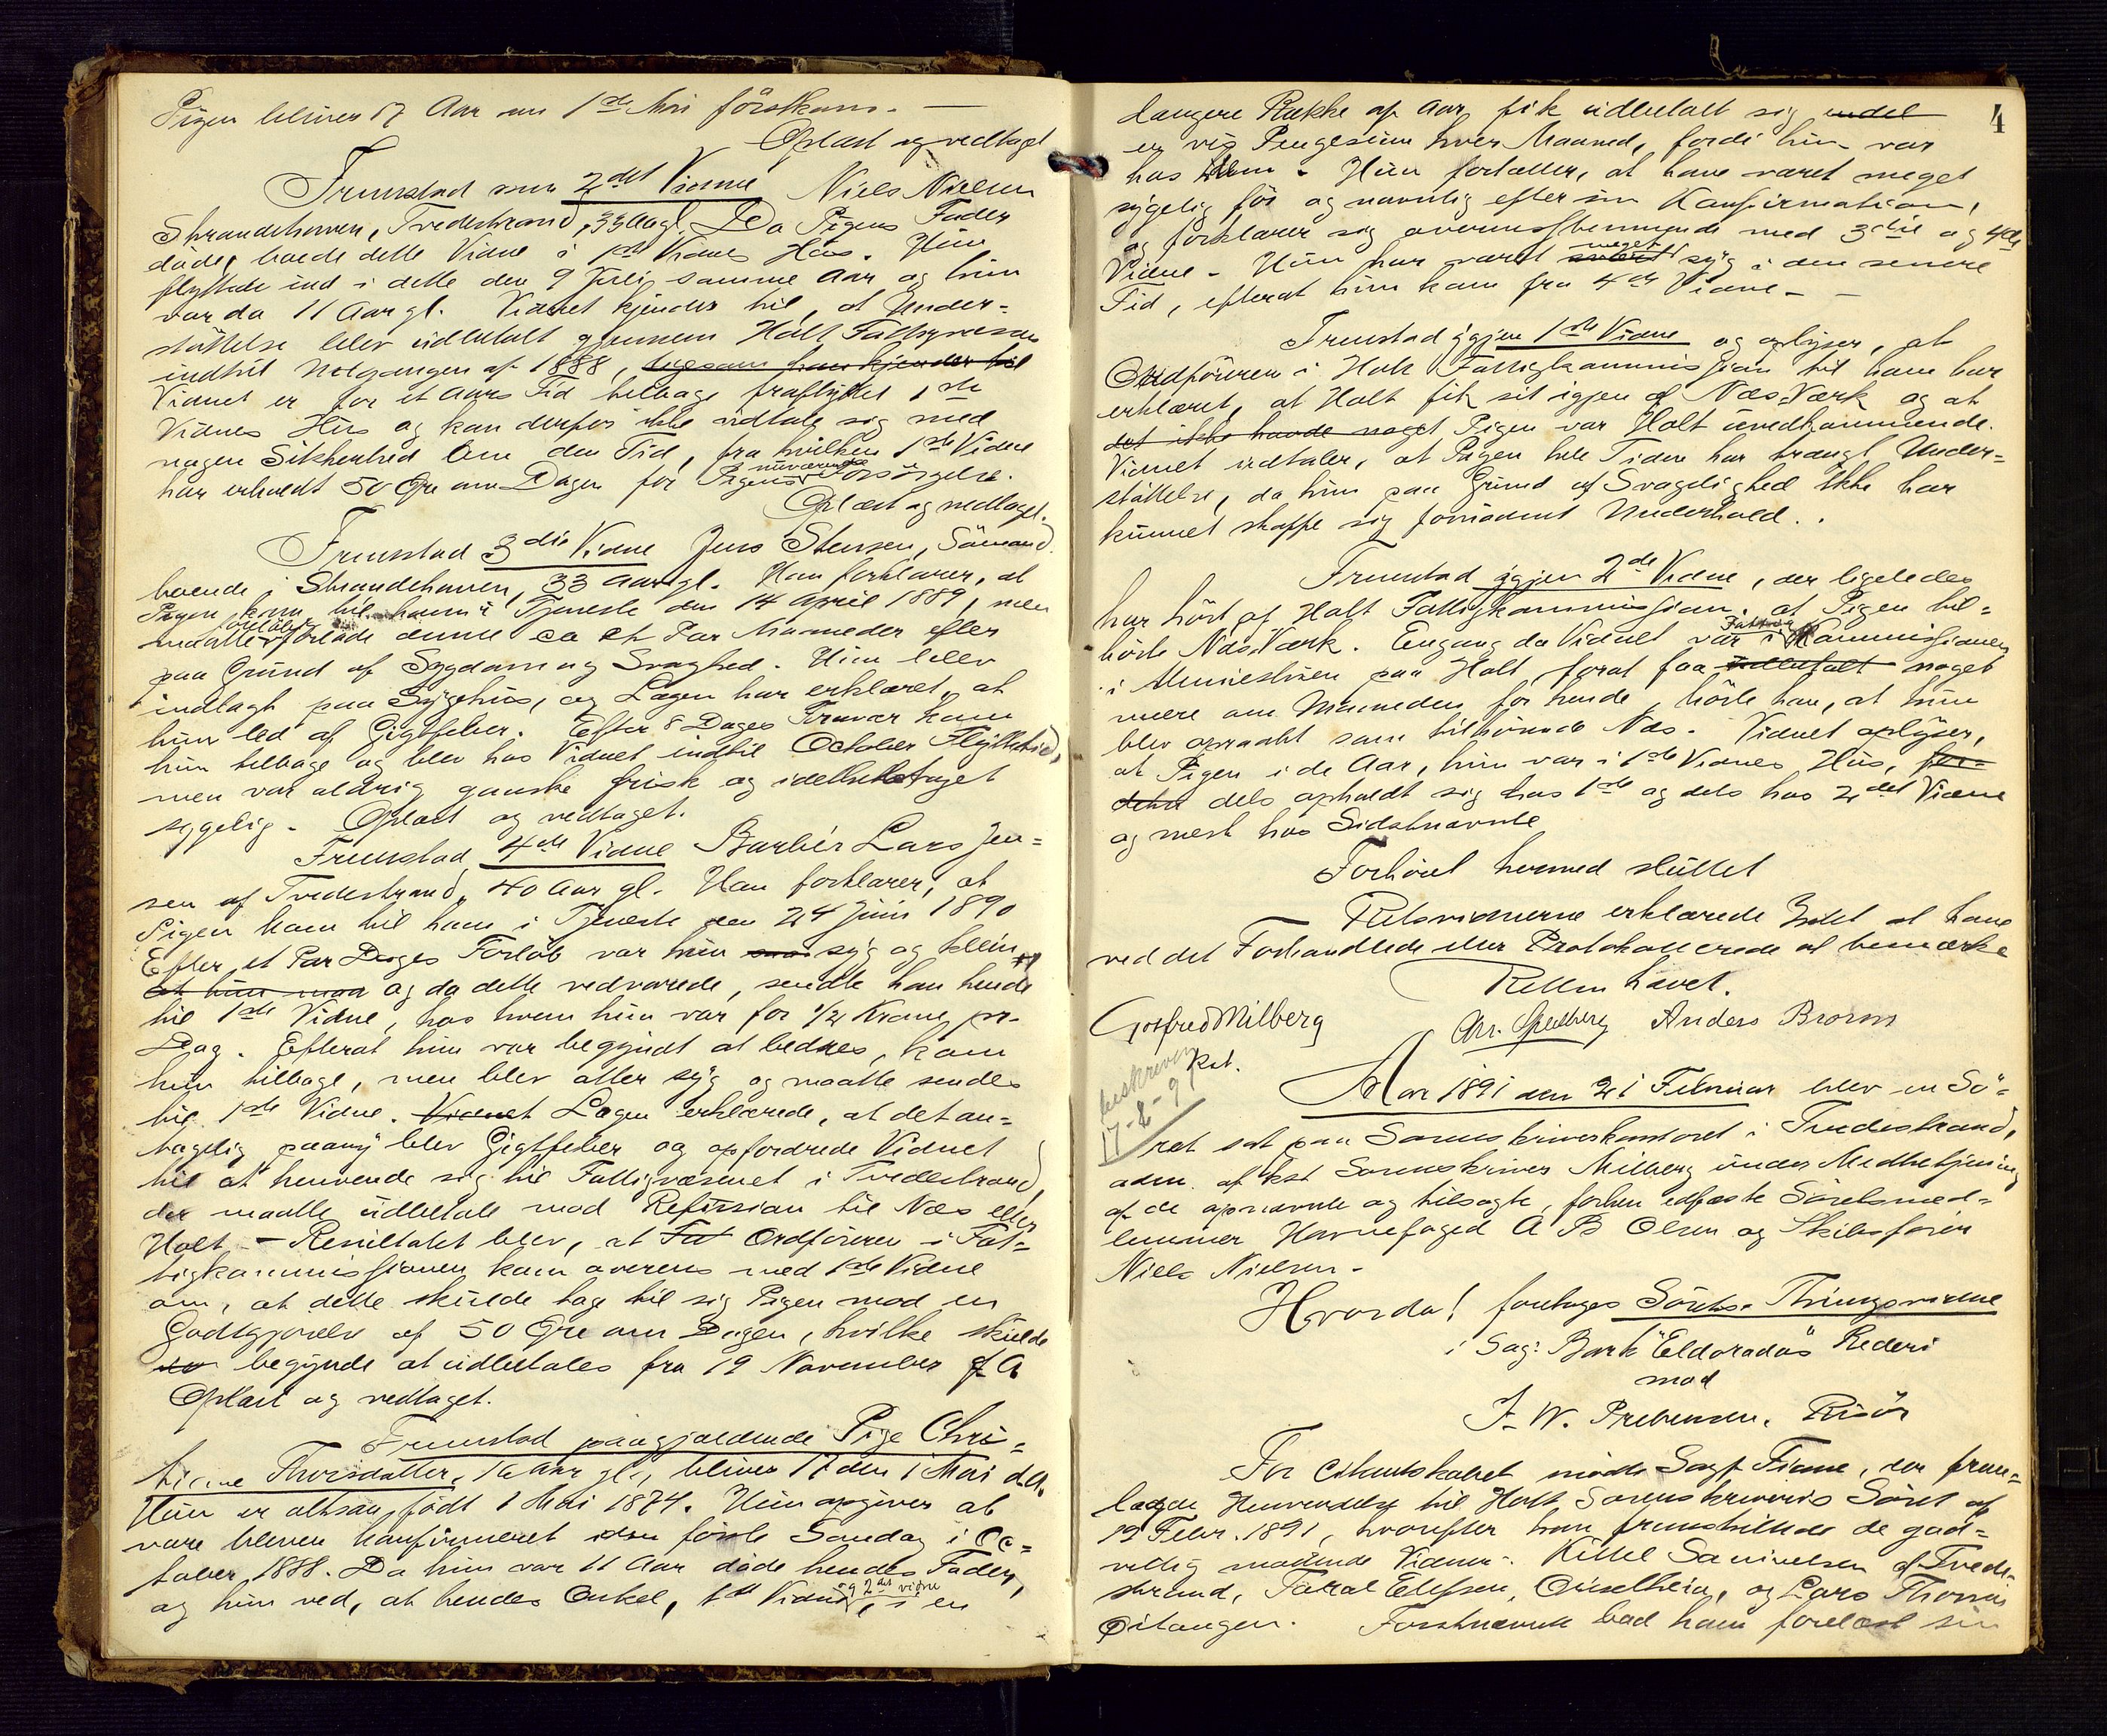 Pigen bliver 17 Aar nu 1ste Mai förstkom. —
Oplæst og vedtaget
Fremstod som 2det Vidne Niels Nielsen
Strandehaven, Tvedestrand, 33 Aar gl. Da Pigens Fader
döde, boede dette Vidne i 1ste Vidnes Hus. Hun
flyttede ind i dette den 9 Juli samme Aar og hun
var da 11 Aar gl. Vidnet kjender til, at Under-
støttelse blev udbetalt gjennem Holt Fattigvæsen
indtil Udgangen af 1888, ligesom han kjender til
Vidnet er for et Aars Tid tilbage fraflyttet 1ste
Vidnes Hus og kan derfor ikke udtale sig med
nogen Sikkerhed om den Tid, fra hvilken 1ste Vidne
har erholdt 50 Øre om Dagen for Pigens nuværende Forsörgelse.
Oplæst og vedtaget.
Fremstod 3die Vidne Jens Stensen, Sömand
boende i Strandehaven, 33 Aar gl. Han forklarer, at
Pigen kom til ham i Tjeneste den 14 April 1889, men
maatte forlade denne ca et Par Maaneder efter
paa Grund af Sygdom og Svaghed. Hun blev
indlagt paa Sygehus, og Lægen har erklæret, at
hun led af Gigtfeber. Efter 8 Dages Fravær kom
hun tilbage og blev hos Vidnet indtil October Flyttetid,
men var aldrig ganske frisk og idethele taget
sygelig. Oplæst og vedtaget.
Fremstod 4de Vidne Barbér Lars Jen-
sen af Tvedestrand, 40 Aar gl. Han forklarer, at
Pigen kom til ham i Tjeneste den 24 Juni 1890
Efter et Par Dages Forløb var hun saa syg og klein,
at hun maa og da dette vedvarede, sendte han hende
til 1ste Vidne, hos hvem hun var for 1/2 Krone pr.
Dag. Efterat hun var begyndt at bedres, kom
hun tilbage, men blev atter syg og maatte sendes
til 1ste Vidne. Vidnet Lægen erklærede, at det an-
tagelig paany blev Gigtfeber og opfordrede Vidnet
til at henvende sig til Fattigvæsenet i Tvedestrand,
der maatte udbetale mod Refusion til Næs eller
Holt — Resultatet blev, at Fat Ordföreren i Fat-
tigkommissjonen kom overens med 1ste Vidne
om, at dette skulde tage til sig Pigen mod en
Godtgjörelse af 50 Øre om Dagen, hvilke skulde
begynde at udbetales fra 19 November f. A
Oplæst og vedtaget.
Fremstod paagjældende Pige Chri-
stine Thorsdatter, 16 Aar gl., bliver 17 den 1 Mai d.A.
Hun er altsaa født 1 Mai 1874. Hun opgiver at
være bleven konfirmeret den förste Søndag i Oc-
tober 1888. Da hun var 11 Aar döde hendes Fader,
og hun ved, at hendes Onkel, 1ste Vidne, og 2det Vidne i en
4
længere Række af Aar fik udbetalt sig endel
en vis Pengesum hver Maaned, fordi hun var
hos dem. Hun fortæller, at have været meget
sygelig för og navnlig efter sin Konfirmation,
og forklarer sig overensstemmende med 3die og 4de
Vidne. Hun har været svært meget syg i den senere
Tid, efterat hun kom fra 4de Vidne. —
Fremstod igjen 1ste Vidne og oplyser, at
Ordföreren i Holt Fattigkommissjon til ham har
erklæret, at Holt fik sit igjen af Næs Værk og at
det ikke havde noget Pigen var Holt uvedkommende.
Vidnet udtaler, at Pigen hele Tiden har trængt Under-
støttelse, da hun paa Grund af Svagelighed ikke har
kunnet skaffe sig fornødent Underhold.
Fremstod igjen 2det Vidne, der ligeledes
har hört af Holt Fattigkommissjon, at Pigen til-
hörte Næs Værk. Engang da Vidnet var i Fattig Kommissjonen
i Ministuen paa Holt, forat faa udbetalt noget
mere om Maaneden for hende, hörte han, at hun
blev opraabt som tilhörende Næs. Vidnet oplyser,
at Pigen i de Aar, hun var i 1ste Vidnes Hus, for-
dels opholdt sig hos 1ste og dels hos 2det Vidne
og mest hos Sidstnævnte
Forhöret hermed sluttet
Retsvidnerne erklærede Intet at have
ved det Forhandlede eller Protokollerede at bemærke
Retten hævet.
Gotfred Milberg Chr. Spedberg Anders Brorsen
Kst.
beskreven
17-2-91
Aar 1891 den 21 Februar blev en Sö-
ret sat paa Sorenskriverkontoret i Tvedestrand,
adm. af kst Sorenskriver Milberg under Medbetjening
af de opnævnte og tilsagte, forhen edfæste Söretsmed-
lemmer Havnefoged A B Olsen og Skibsförer
Niels Nielsen.
Hvorda! foretoges Sörets-Thingsvidne
i Sag: Bark "Eldorados" Rederi
mod
J. W. Prebensen, Risör
For Citantskabet mödte Sagf. Fiane, der frem-
lagde Henvendelse til Holt Sorenskriveris Söret af
19 Febr. 1891, hvorefter han fremstillede de god-
villig mødende Vidner: Kittel Samuelsen af Tvede-
strand, Taral Ellefsen, Ouselheia, og Lars Thomas
Østangen. Forstnævnte bad ham forelæst sin